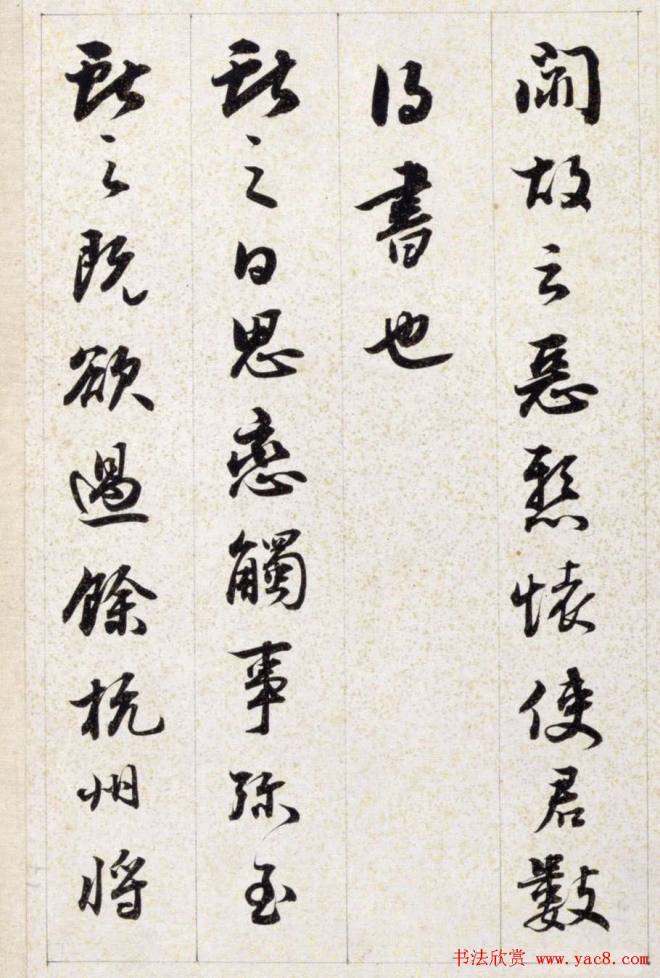 闊故云惡懸懷使君數
得書也
獻之日思戀觸事彌至
獻之既欲過餘杭州將
书法欣赏 www.yac8.com